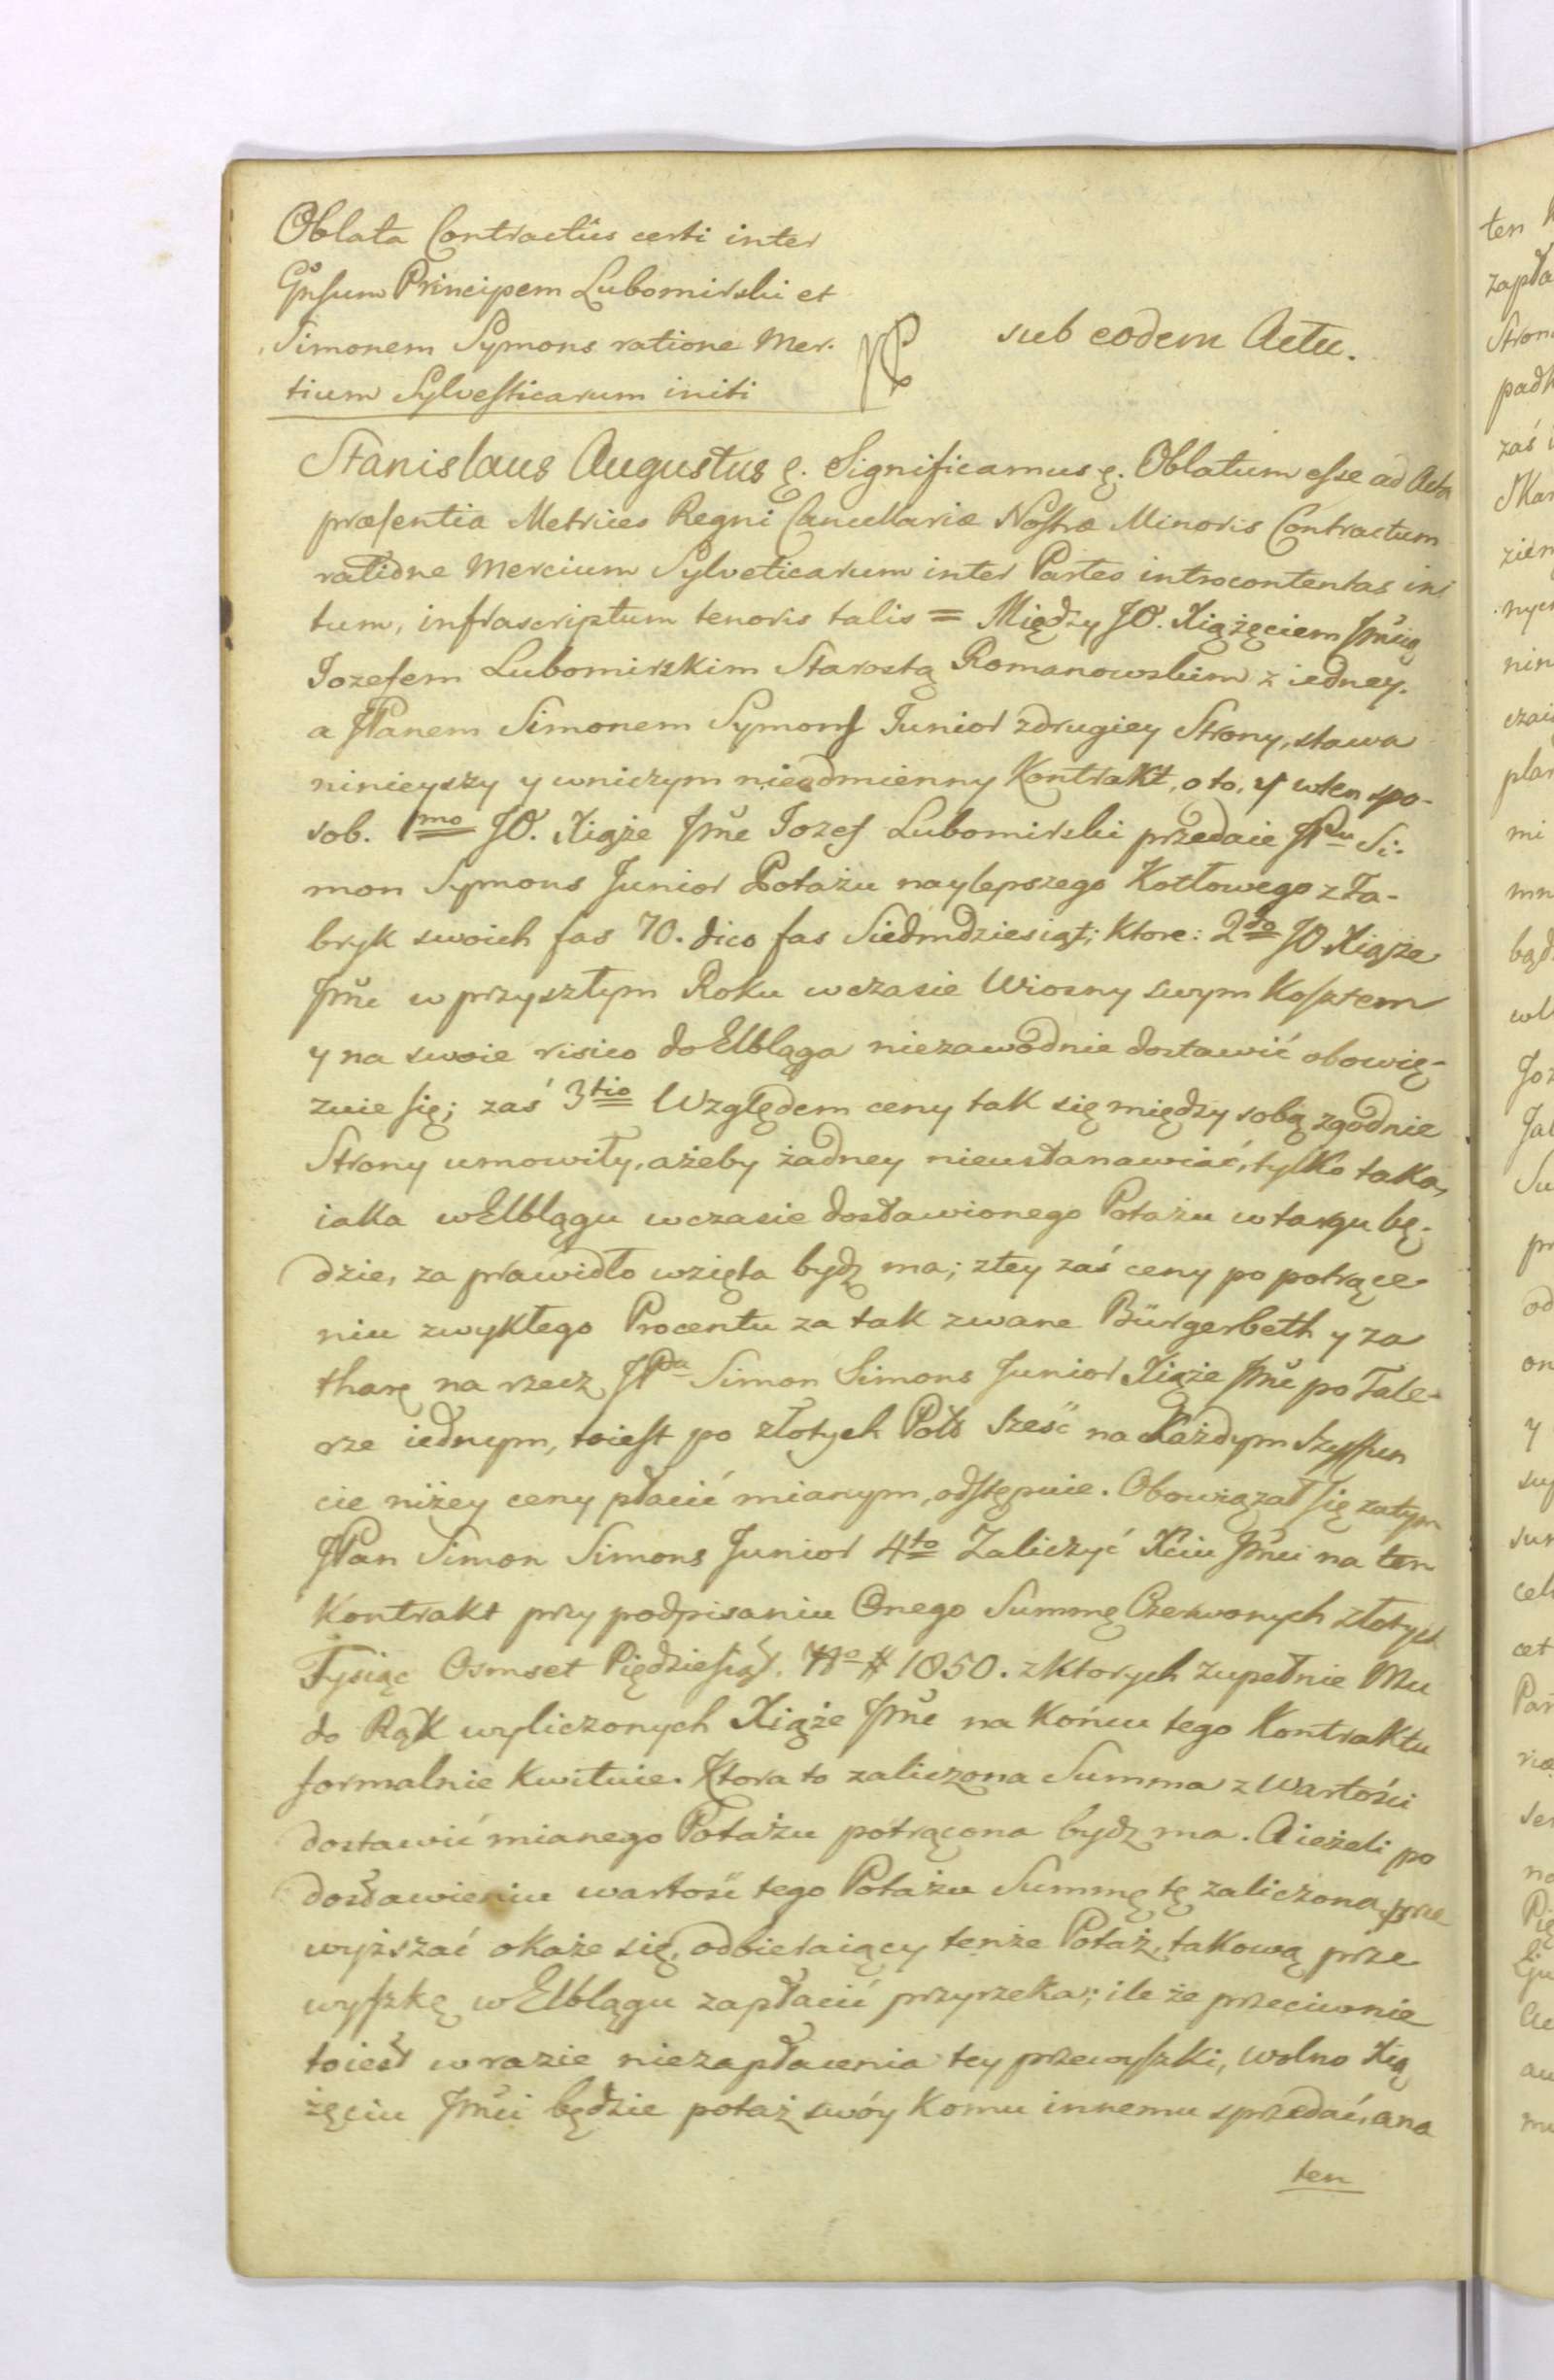 Oblata Contractûs certi inter
Gnsum Principem Lubomirski et
Simonem Symons ratione Mer-
tium Sylvesticarum initi
sub eodem Actu.
Stanislaus Augustus &. Significamus &. Oblatum esse ad Acta
præsentia Metrices Regni Cancellariæ Nostræ Minoris Contractum
ratione Mercium Sylveticarum inter Partes introcontentas ini
tum, infrascriptum tenoris talis = Między JO. Xiążęciem Jmcią
Iozefem Lubomirskim Starostą Romanowskim z iedney.
a JPanem Simonem Symons Junior zdrugiey Strony, stawa
ninieyszy y wniczym nieodmienny Kontrakt, o to, y wten spo-
sob. 1mo JO. Xiąże Jmc Iozef Lubomirski przedaie JPdu Si-
mon Symons Junior Potażu naylepszego Kotłowego z Fa-
bryk swoich fas 70. dico fas Siedmdziesiąt; Ktore: 2do JO Xiąże
Jmc w przyszłym Roku wczasie Wiosny swym Kosztem
y na swoie risico do Elbląga niezawodnie dostawić obowię-
zuie się; zaś 3tio Względem ceny tak się między sobą zgodnie
Strony umowiły, ażeby żadney nieustanawiać, tylko taka,
iaka w Elblągu wczasie dostawionego Potażu w targu bę-
dzie, za prawidło wzięta bydź ma; ztey zaś ceny po potrące-
niu zwykłego Procentu za tak zwane Bürgerbeth y za
tharę na rzecz JPda Simon Simons Junior Xiąże Jmc po Tale-
rze iednym, toiest po złotych Pols Sześć na Każdym Szyffun
cie niżey ceny płacić mianym, odstępuie. Obowiązał się zatym
JPan Simon Simons Junior 4to Zaliczyć Xciu Jmci na ten
Kontrakt przy podpisaniu Onego Summę Czerwonych złotych
Tysiąc Osmset Piędziesiąt. No # 1850. z ktorych zupełnie Mu
do Rąk wyliczonych Xiąże Jmc na Końcu tego Kontraktu
formalnie Kwituie. Ktora to zaliczona Summa z Wartości
dostawić mianego Potażu potrącona bydź ma. A ieżeli po
dostawieniu wartość tego Potażu Summę tę zaliczoną prze
wyższać okaże się, odbieraiący tenże Potaż, takową prze
wyszkę w Elblągu zapłacić przyrzeka; ile że przeciwnie
toiest w razie niezapłacenia tey przewyszki, wolno Xią
żęciu Jmci będzie potaż swóy Komu innemu sprzedać, a na
ten